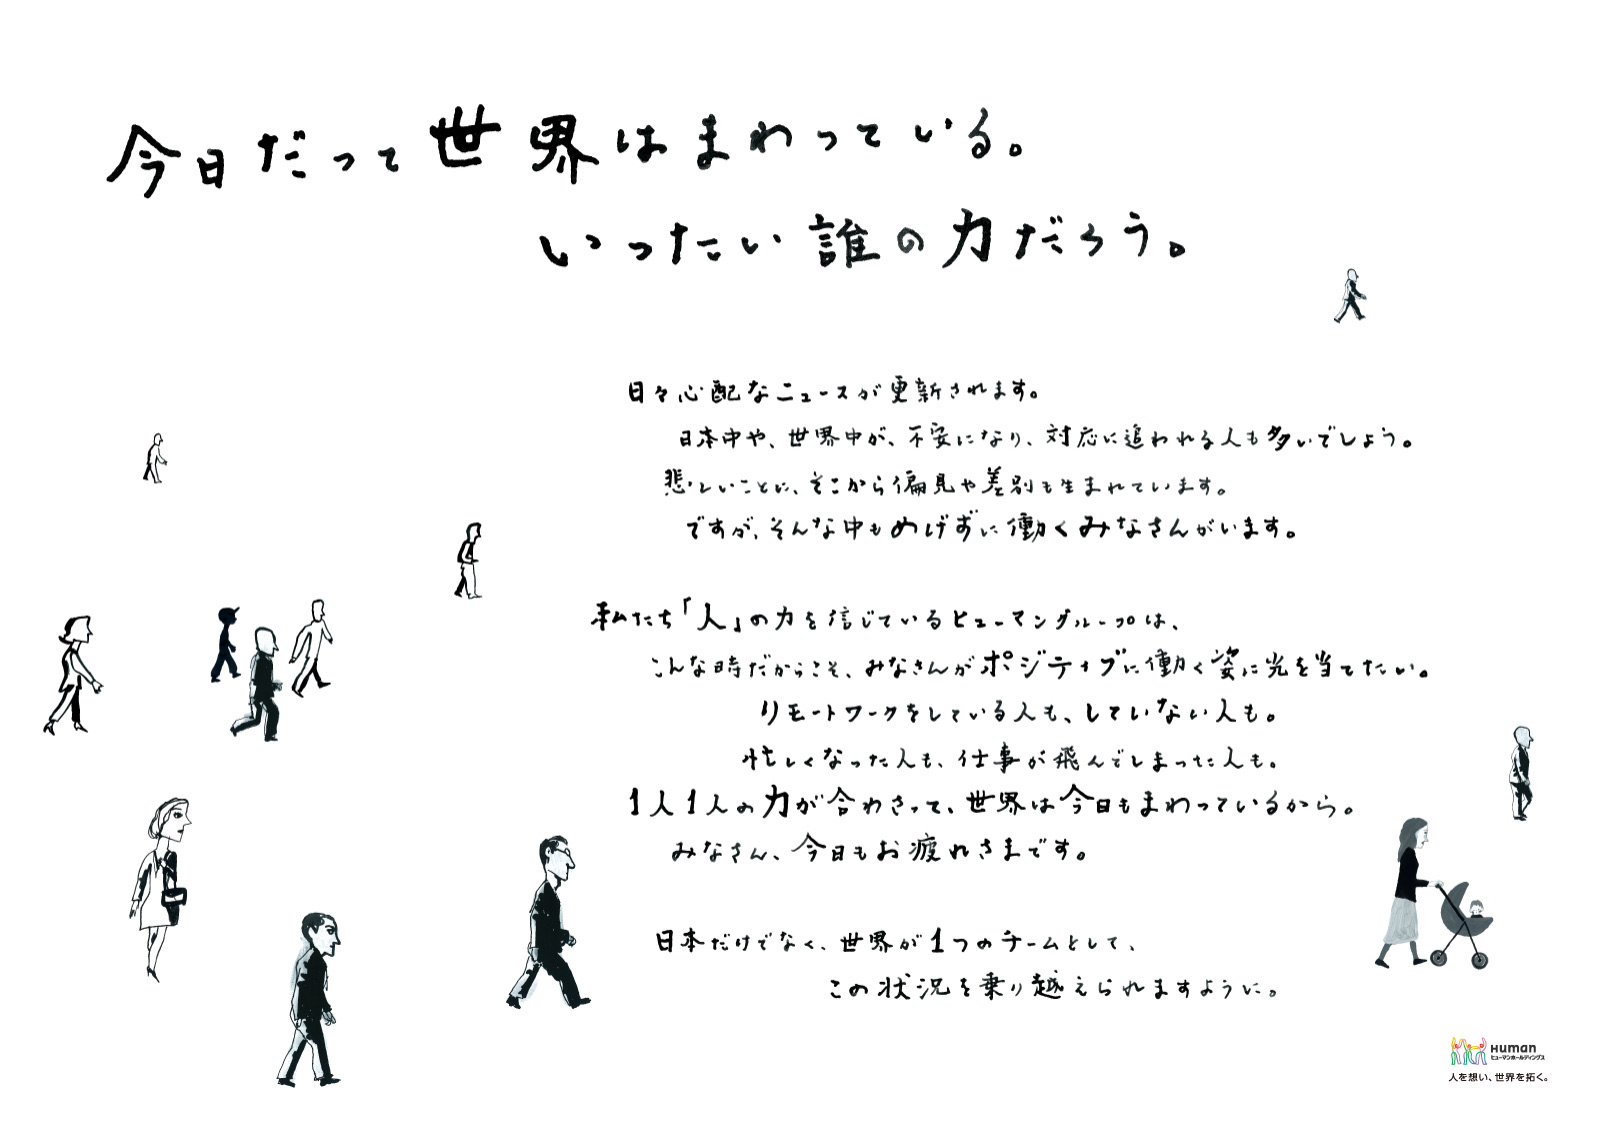 今日だって世界はまわっている。
いったい誰の力だろう。
日々心配なニュースが更新されます。
日本中や、世界中が、不安になり、対応に追われる人も多いでしょう。
悲しいことに、そこから偏見や差別も生まれています。
ですが、そんな中もめげずに働くみなさんがいます。
私たち「人」の力を信じているヒューマングループは、
こんな時だからこそ、みなさんがポジティブに働く姿に光を当てたい。
リモートワークをしている人も、していない人も。
忙しくなった人も、仕事が飛んでしまった人も。
1人1人の力が合わさって、世界は今日もまわっているから。
みなさん、今日もお疲れさまです。
日本だけでなく、世界が1つのチームとして、
この状況を乗り越えられますように。
Human
ヒューマンホールディングス
人を想い、世界を拓く。